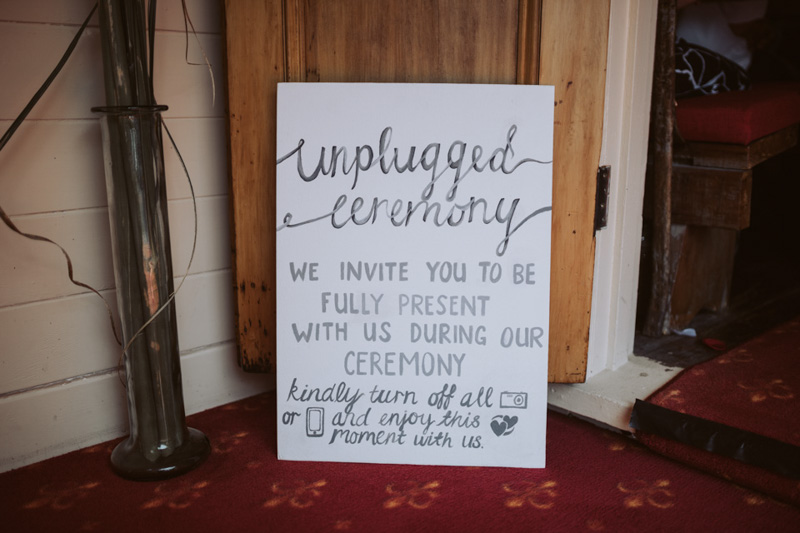 unplugged
ceremony
WE INVITE YOU TO BE
FULLY PRESENT
WITH US DURING OUR
CEREMONY
kindly turn off all
or and enjoy this
moment with us.